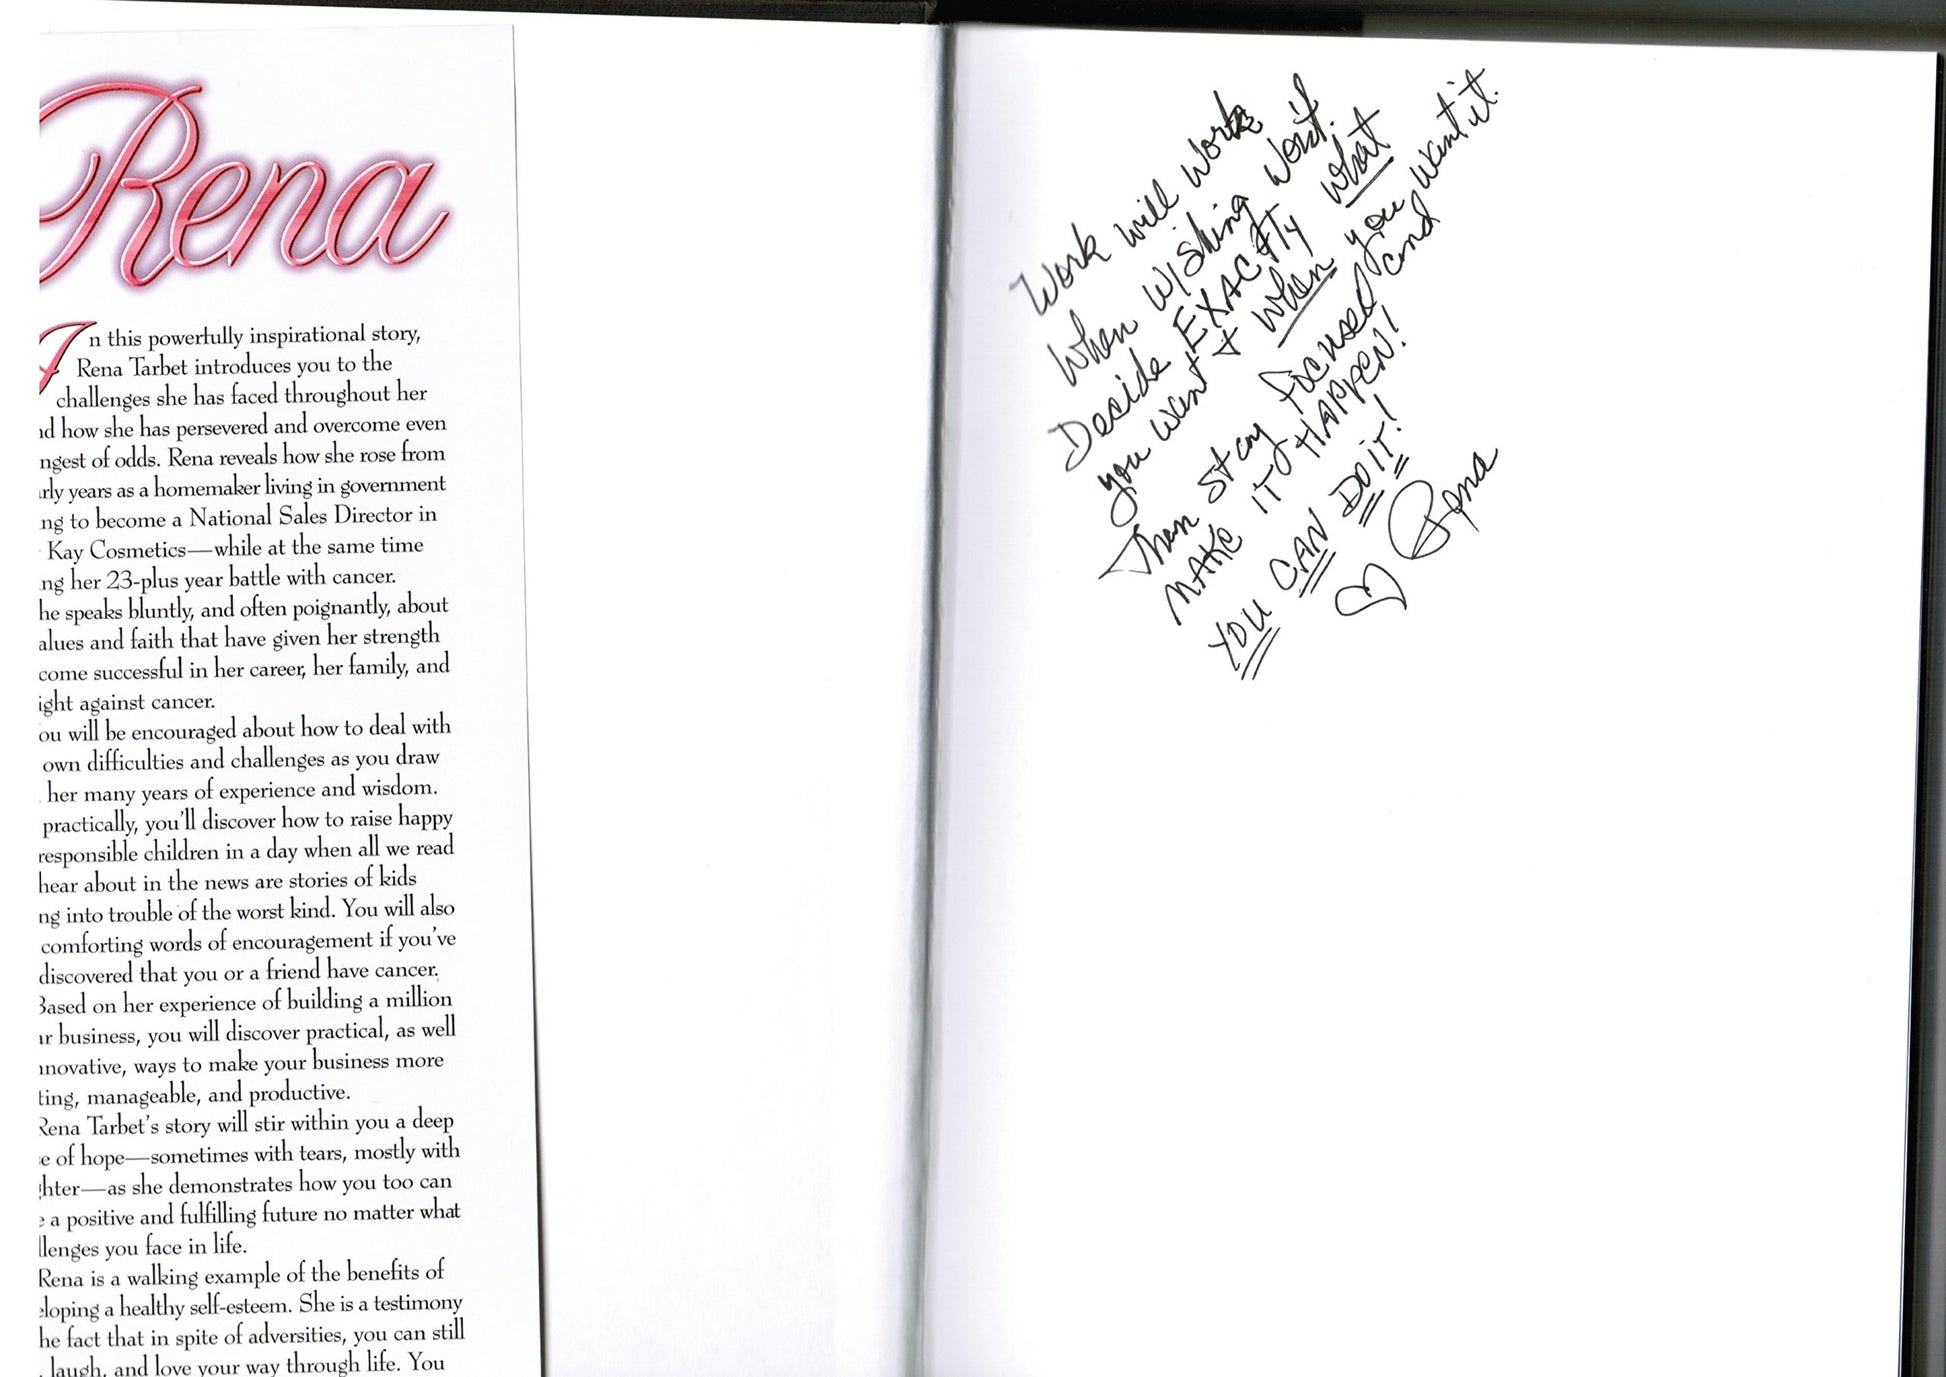 Rena
In this powerfully inspirational story,
Rena Tarbet introduces you to the
challenges she has faced throughout her
nd how she has persevered and overcome even
ngest of odds. Rena reveals how she rose from
rly years as a homemaker living in government
ng to become a National Sales Director in
Kay Cosmetics—while at the same time
ng her 23-plus year battle with cancer.
he speaks bluntly, and often poignantly, about
alues and faith that have given her strength
come successful in her career, her family, and
ight against cancer.
ou will be encouraged about how to deal with
own difficulties and challenges as you draw
her many years of experience and wisdom.
practically, you'll discover how to raise happy
responsible children in a day when all we read
hear about in the news are stories of kids
ng into trouble of the worst kind. You will also
comforting words of encouragement if you've
discovered that you or a friend have cancer.
Based on her experience of building a million
ar business, you will discover practical, as well
nnovative, ways to make your business more
ting, manageable, and productive.
Rena Tarbet's story will stir within you a deep
e of hope—sometimes with tears, mostly with
ghter—as she demonstrates how you too can
e a positive and fulfilling future no matter what
llenges you face in life.
Rena is a walking example of the benefits of
eloping a healthy self-esteem. She is a testimony
he fact that in spite of adversities, you can still
, laugh, and love your way through life. You
Work will work
When wishing won't.
Decide EXACTLY what
you want + when you want it.
Then stay focused and
MAKE IT HAPPEN!
YOU CAN DO IT!
♡ Rena